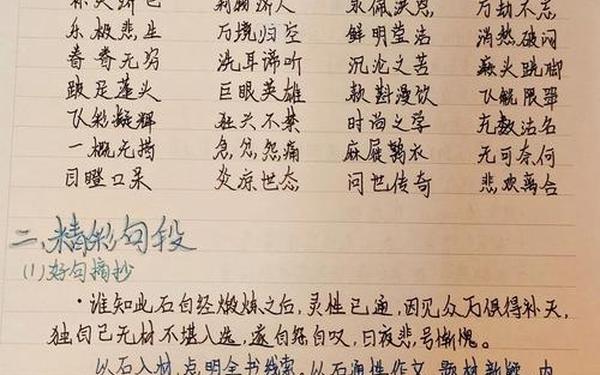 永佩洪恩 万劫不忘
乐极悲生 万境归空 鲜明莹洁 消愁破闷
眷眷无穷 洗耳谛听 沉沦之苦 蓬头跣脚
跛足蓬头 巨眼英雄 款斟漫饮 飞觥限斝
飞彩凝辉 狂兴不禁 时尚之学 充数沽名
一概无措 急忿怨痛 麻屣鹑衣 无可奈何
目瞪口呆 炎凉世态 问世传奇 悲欢离合
二、精彩句段
(1)好句摘抄
·谁知此石自经煅炼之后,灵性已通,因见众石俱得补天,
独自己无材不堪入选,遂自怨自叹,日夜悲号惭愧。
以石入材,点明全书线索。以石通性作文,题材新颖,内